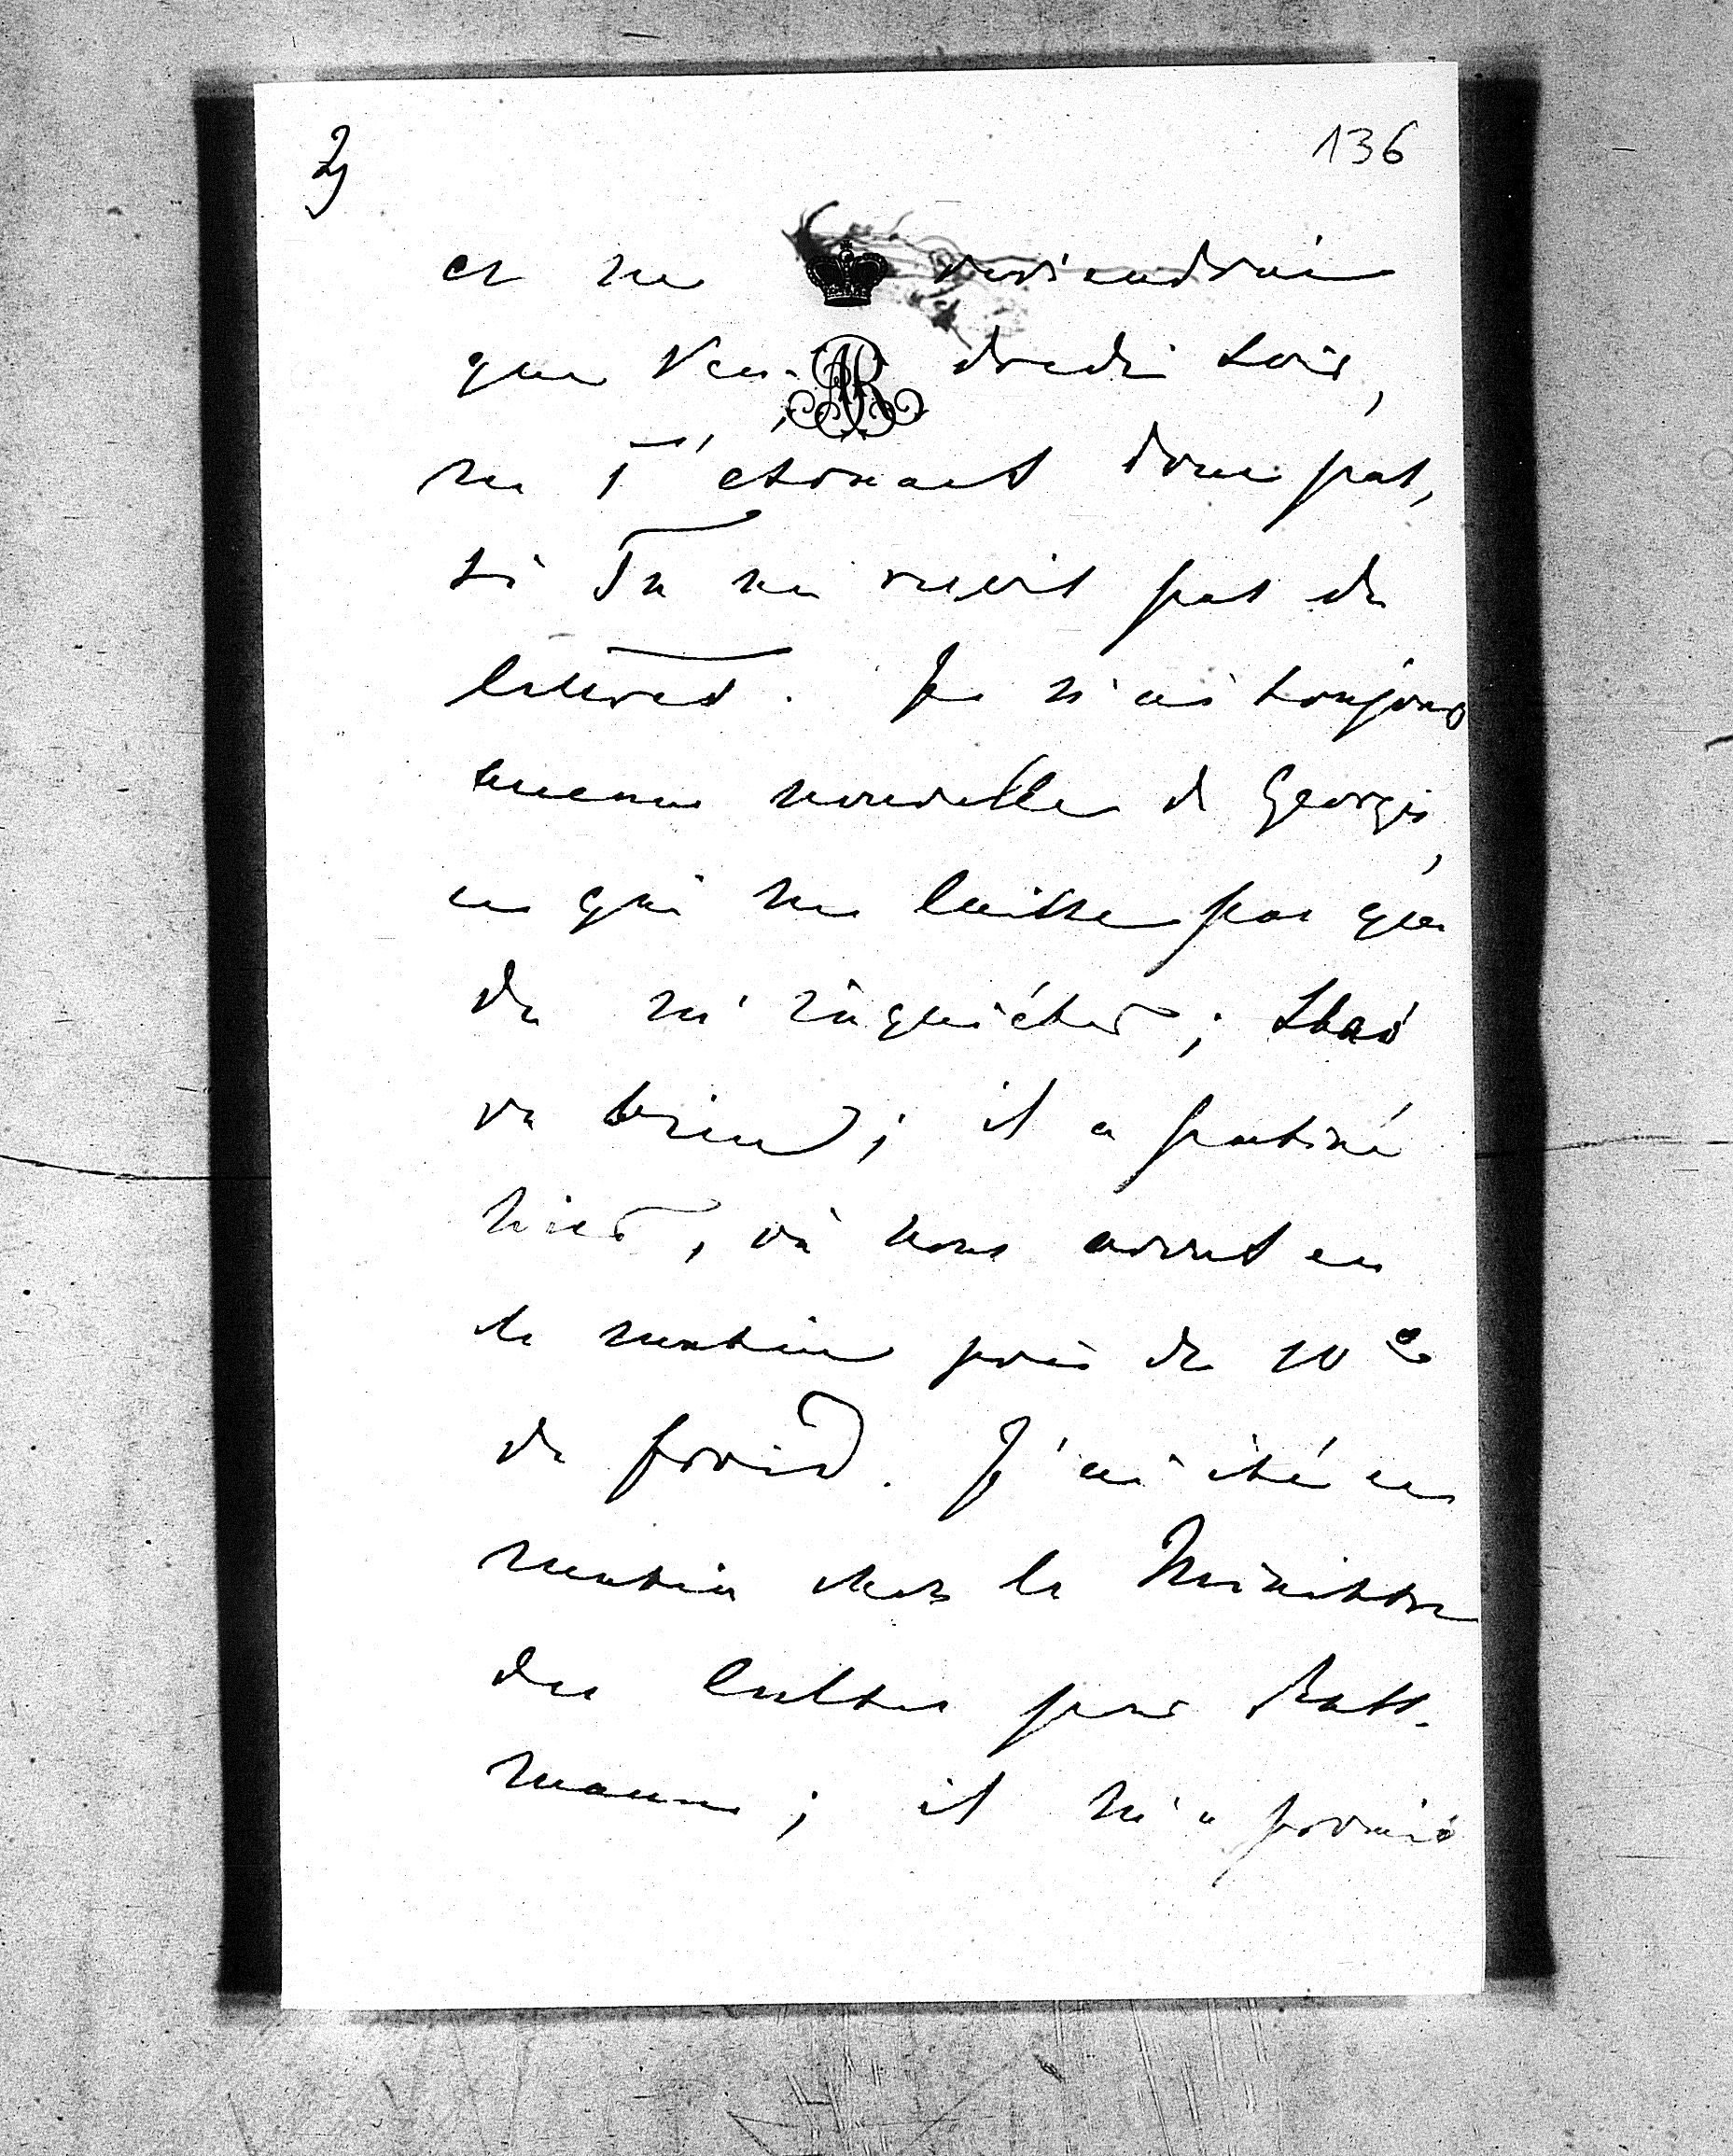 2)
136
et ne reviendrai
que Ven- dredi soir,
ne T'étonnes donc pas,
si Tu ne reçois pas de
lettres. Je n'ai toujours
aucune nouvelle de Georges,
ce qui ne laisse pas que
de m'inquiéter;
va bien; il a patiné
hier, où nous avons eu
le matin près de 10°
de froid. J'ai été ce
matin chez le Ministre
des Cultes pour
mann; il m'a promis